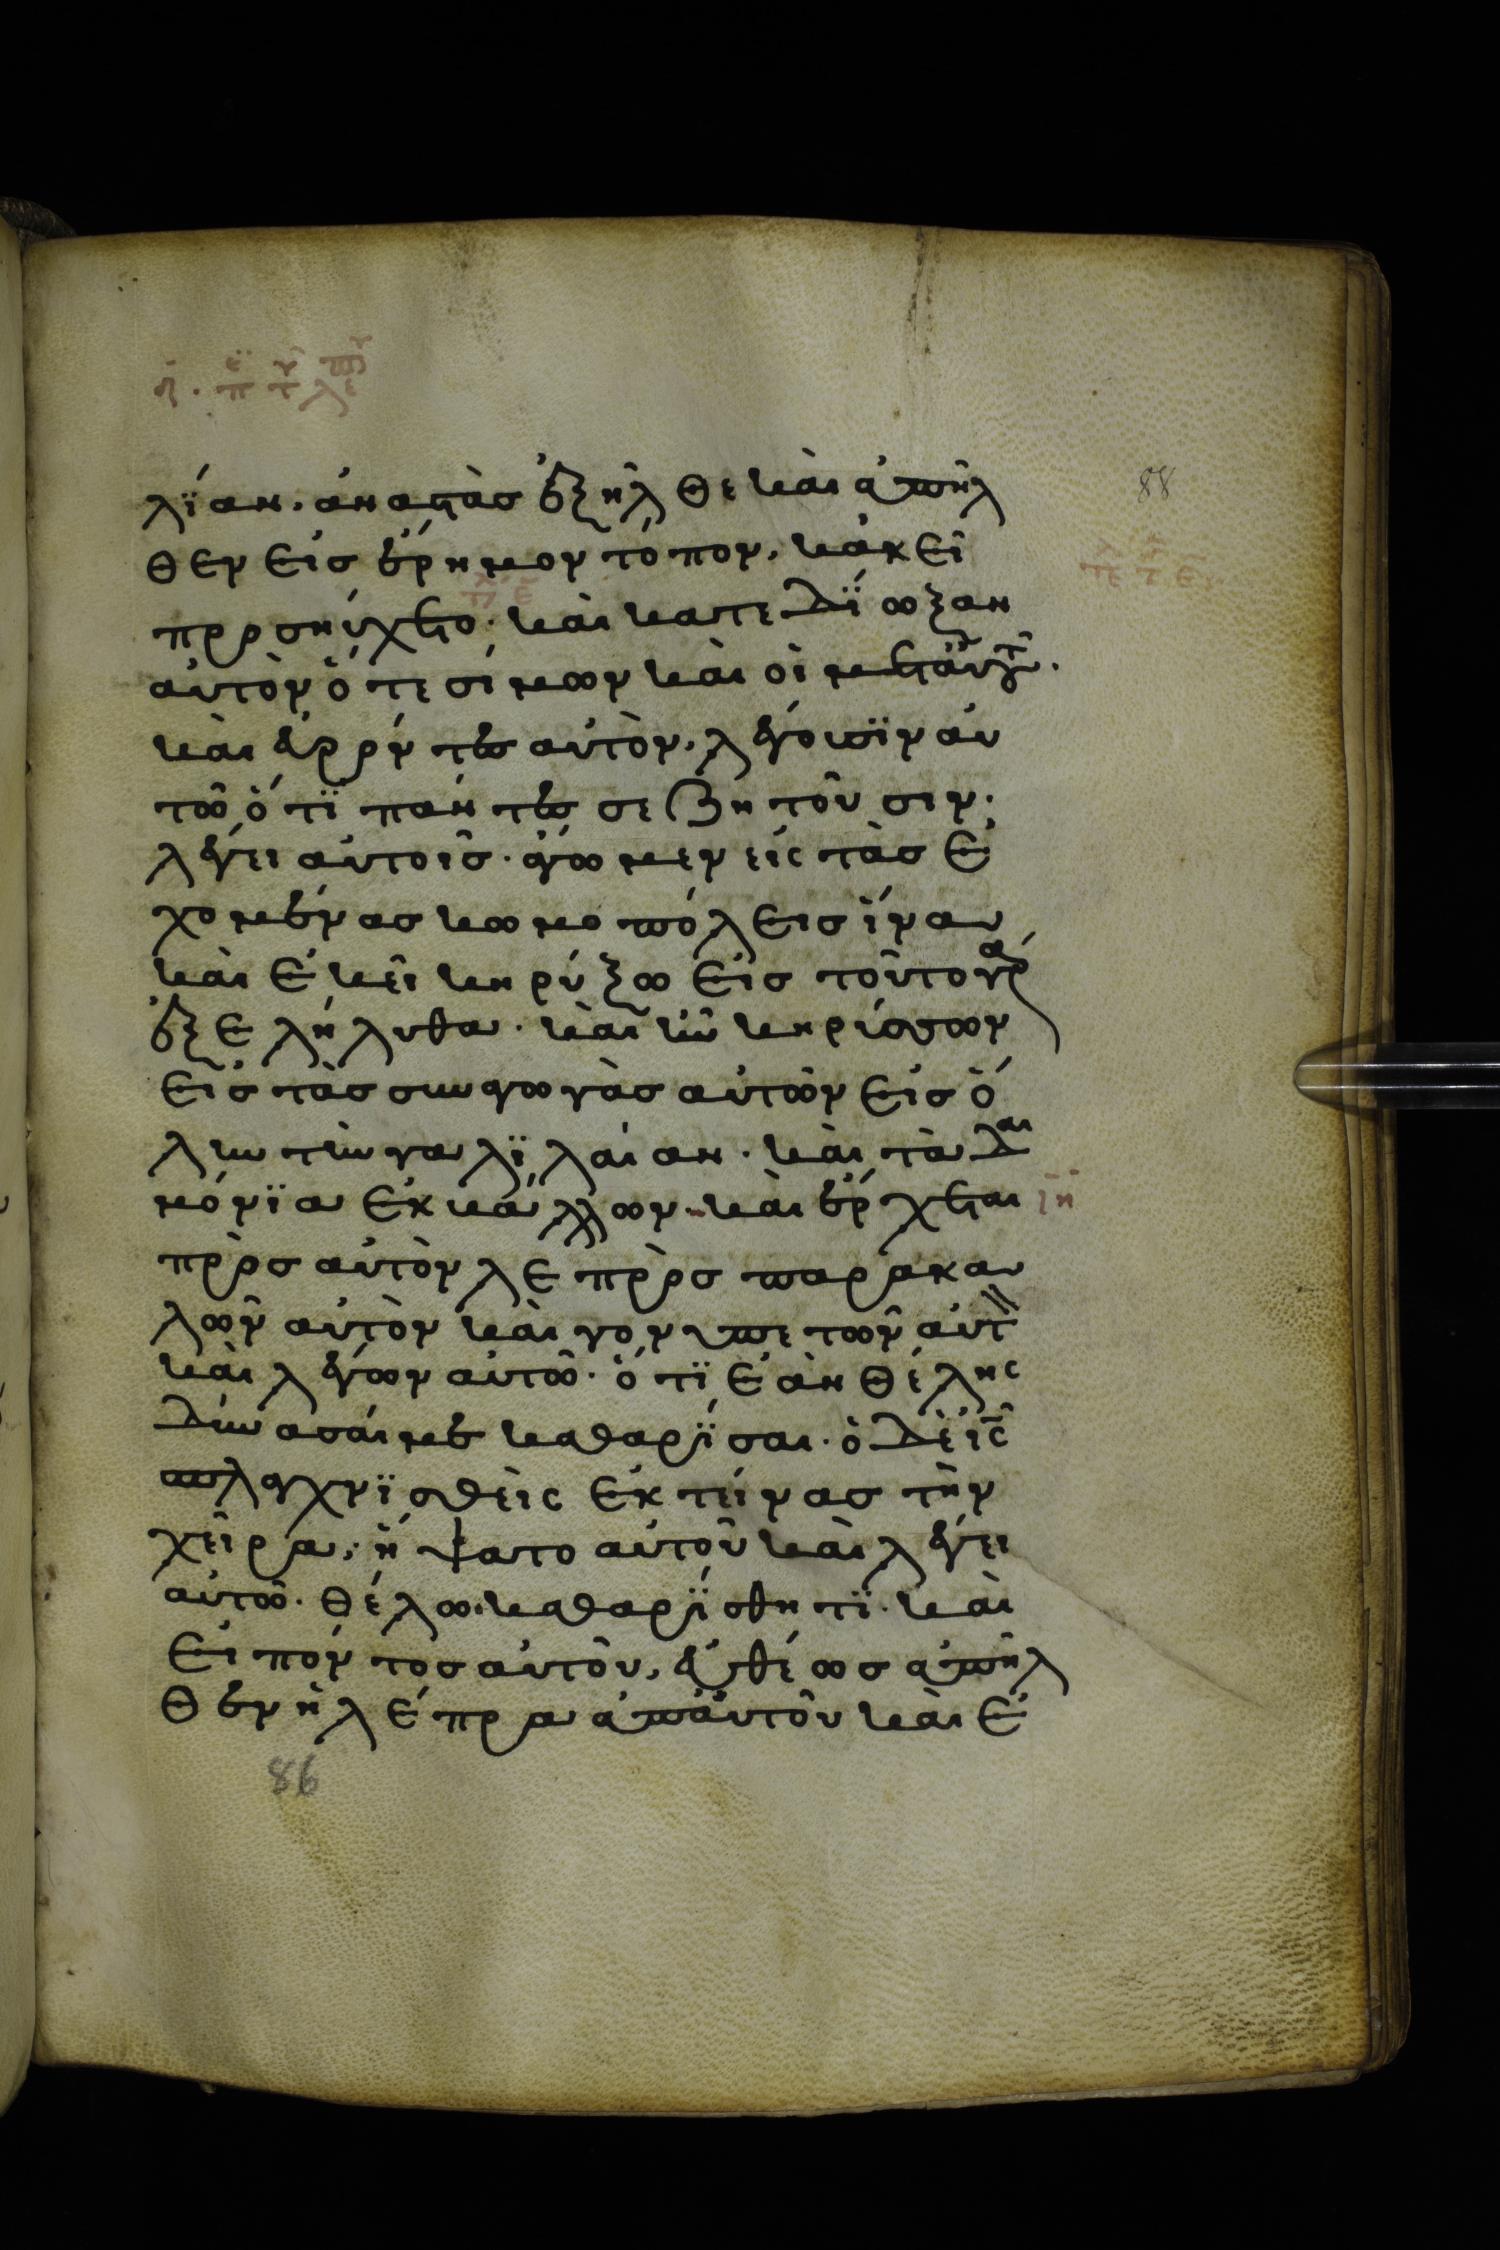 δ. περὶ τοῦ λεπροῦ
88
λϊαν. ἀναστὰς ἐξῆλθε καὶ ἀπῆλ
θεν εἰς ἔρημον τόπον, κἀκεῖ
προσηύχετο. καὶ κατεδΐωξαν
αὐτὸν ὅ τε σίμων καὶ οἱ μετ' αὐτοῦ.
καὶ εὑρόντες αὐτὸν, λέγουσϊν αὐ
τῶ ὅτϊ πάντες σε ζητοῦσιν.
λέγει αὐτοῖς. ἄγωμεν εἰς τὰς ἐ
χομένας κωμοπόλεις ἵνα
καὶ ἐκεῖ κηρύξω εἰς τοῦτο γὰρ
ἐξελήλυθα. καὶ ἦν κηρύσσων
εἰς τὰς συναγωγὰς αὐτῶν εἰς ὅ
λην τὴν γαλϊλαίαν. καὶ τὰ δαι
μόνϊα ἐκκάλλων. καὶ ἔρχεται
ιη
πρὸς αὐτὸν λεπρὸς παρακα
λῶν αὐτὸν καὶ γονυπετῶν αὐτὸν
καὶ λέγων αὐτῶ. ὅτϊ ἐὰν θέλης
δύνασαί με καθαρΐσαι. ὁ δὲ ις
σπλαγχνϊσθεὶς ἐκτείνας τὴν
χεῖρα, ἥψατο αὐτοῦ καὶ λέγει
αὐτῶ. θέλω. καθαρΐσθητϊ. καὶ
εἰπόντος αὐτοῦ, εὐθέως ἀπῆλ
θεν ἡ λέπρα ἀπ' αὐτοῦ καὶ ἐ
86